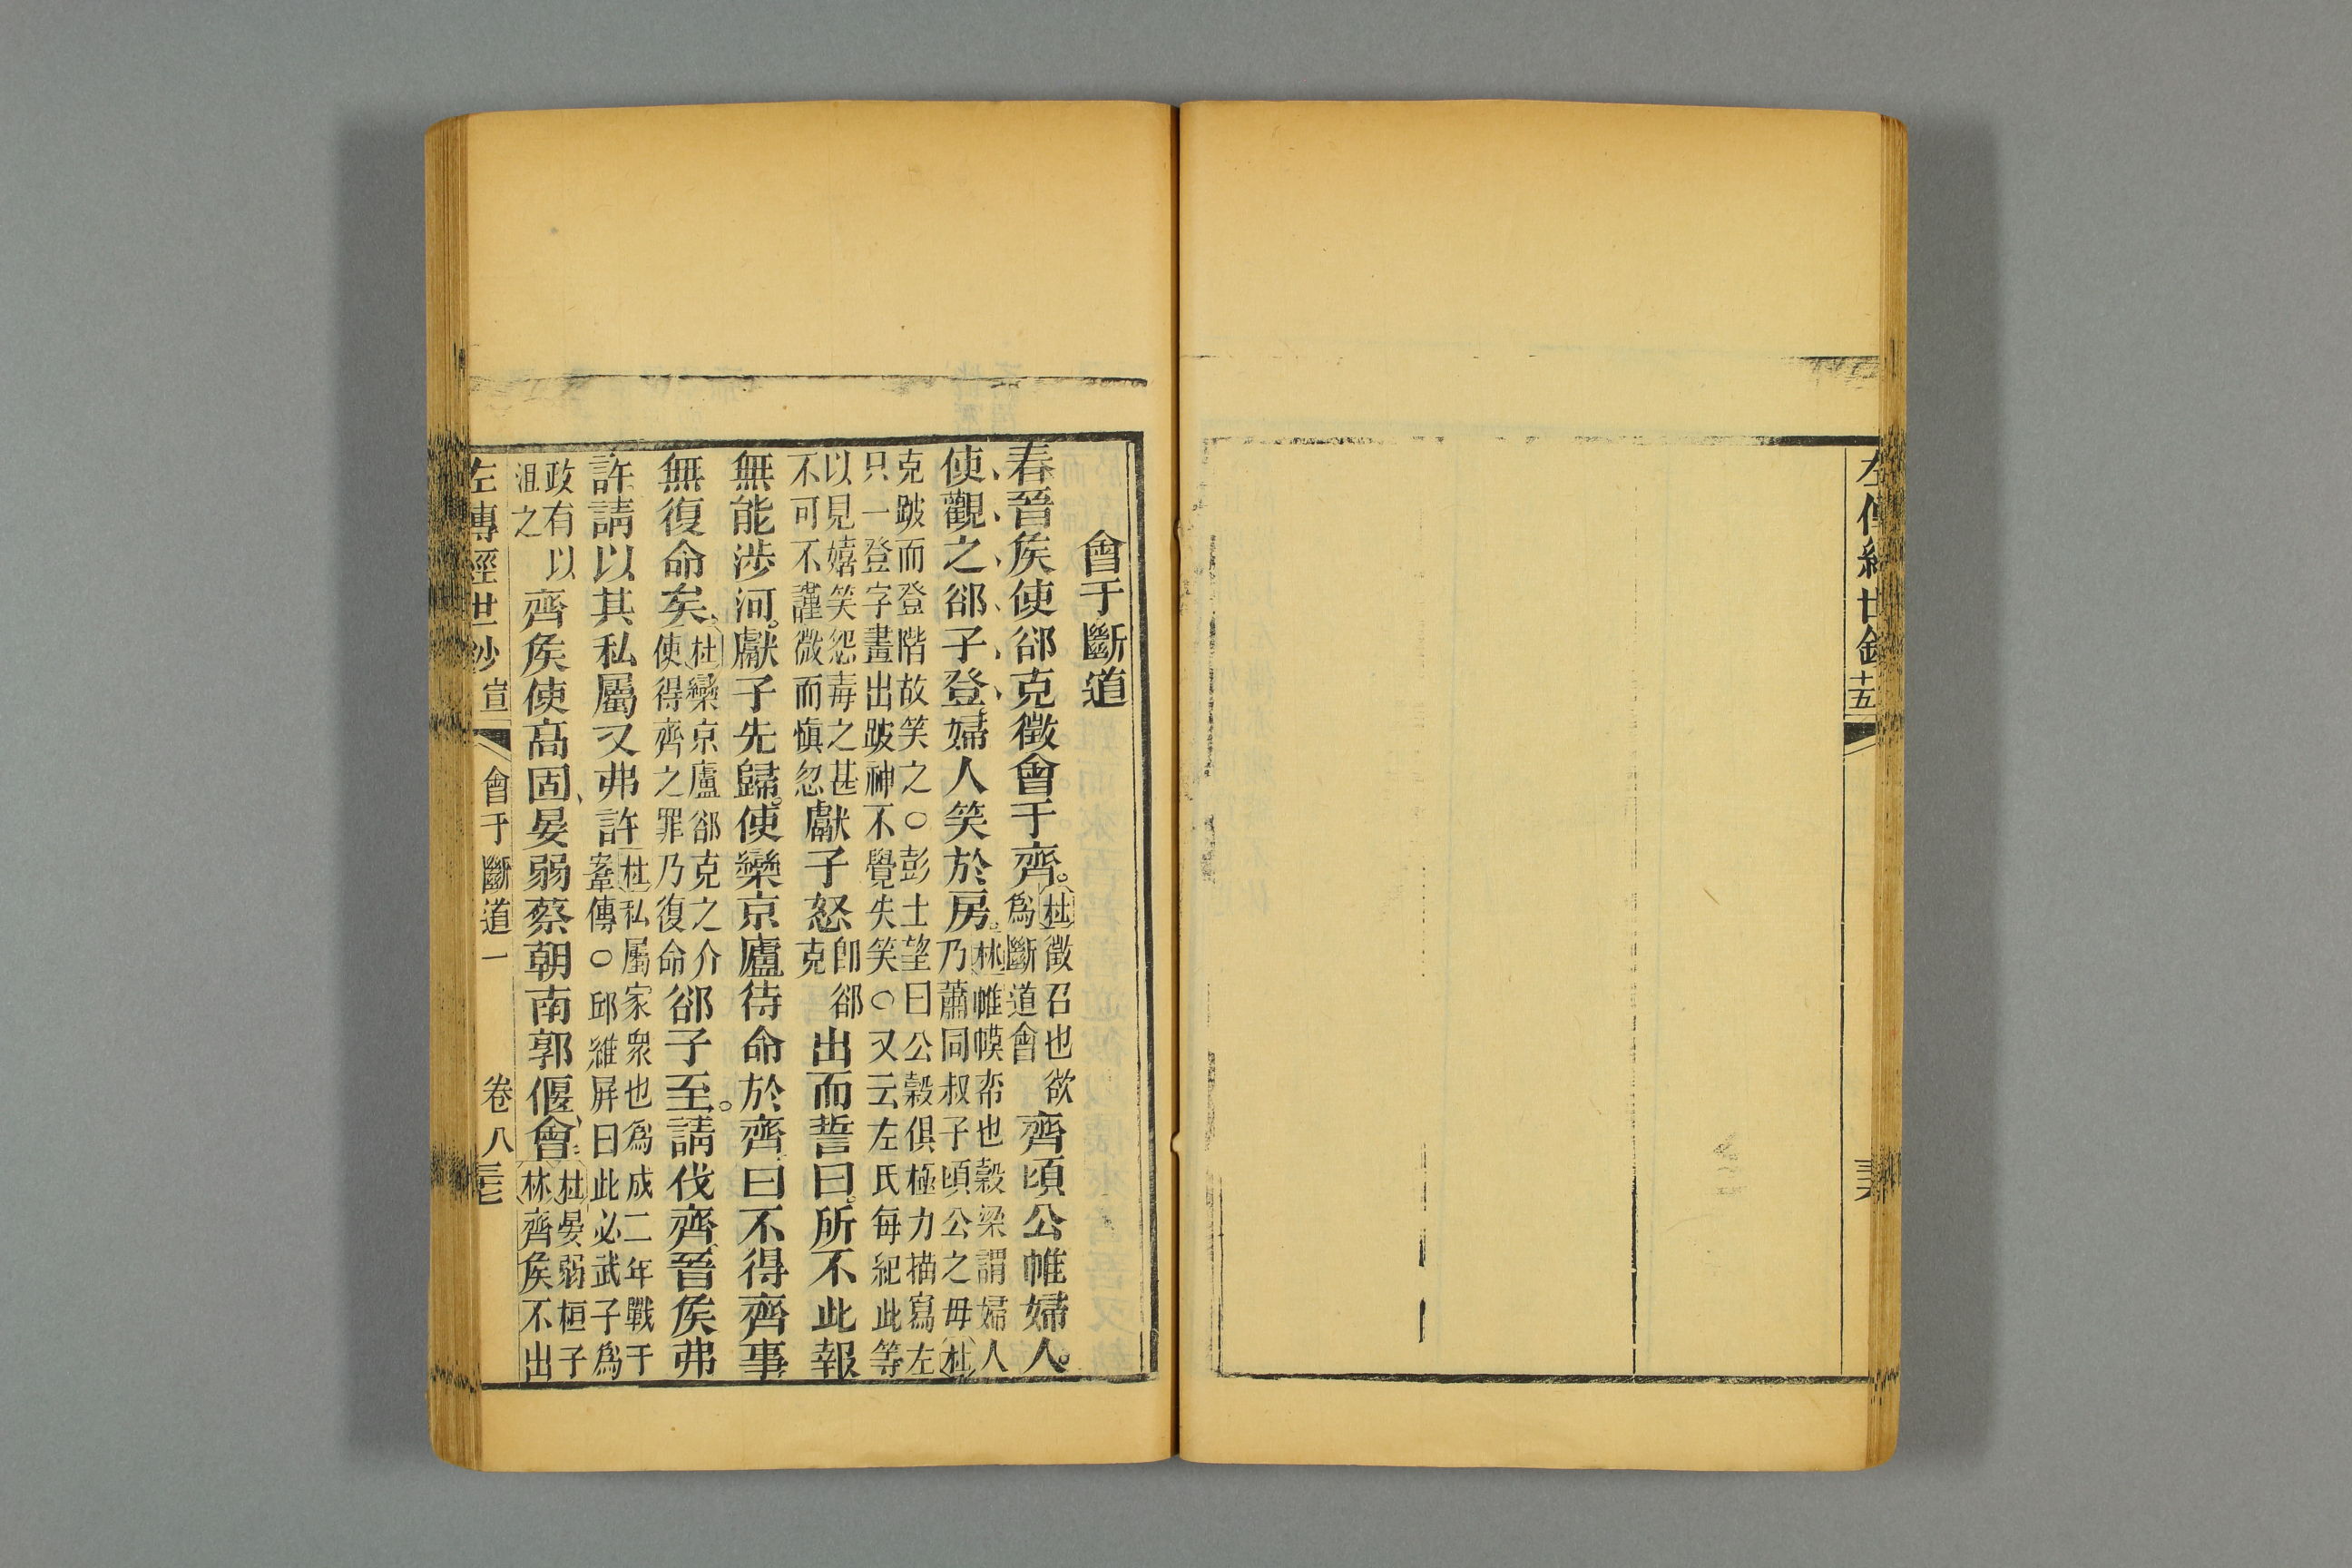 左傳經世鈔 十五
會于斷道
春晉矦使郤克徵會于齊杜徵召也欲爲斷道會齊頃公帷婦人
使觀之郤子登婦人笑於房林帷幙帟也穀梁謂婦人乃蕭同叔子頃公之毋杜
克跛而登階故笑之○彭士望曰公穀俱極力描寫左只一登字畫出跛神不覺失笑○又云左氏每紀此等
以見嬉笑怨毒之甚不可不謹微而愼忽獻子怒卽郤克出而誓曰所不此報
無能渉河獻子先歸使欒京廬待命於齊曰不得齊事
無復命矣杜欒京廬郤克之介使得齊之罪乃復命郤子至請伐齊晉矦弗
許請以其私屬又弗許杜私屬家衆也爲成二年戰于鞌傳○邱維屏曰此必武子爲
政有以沮之齊矦使高固晏弱蔡朝南郭偃會杜晏弱桓子林齊矦不出
左傳經世鈔 宣 會于斷道一 卷八